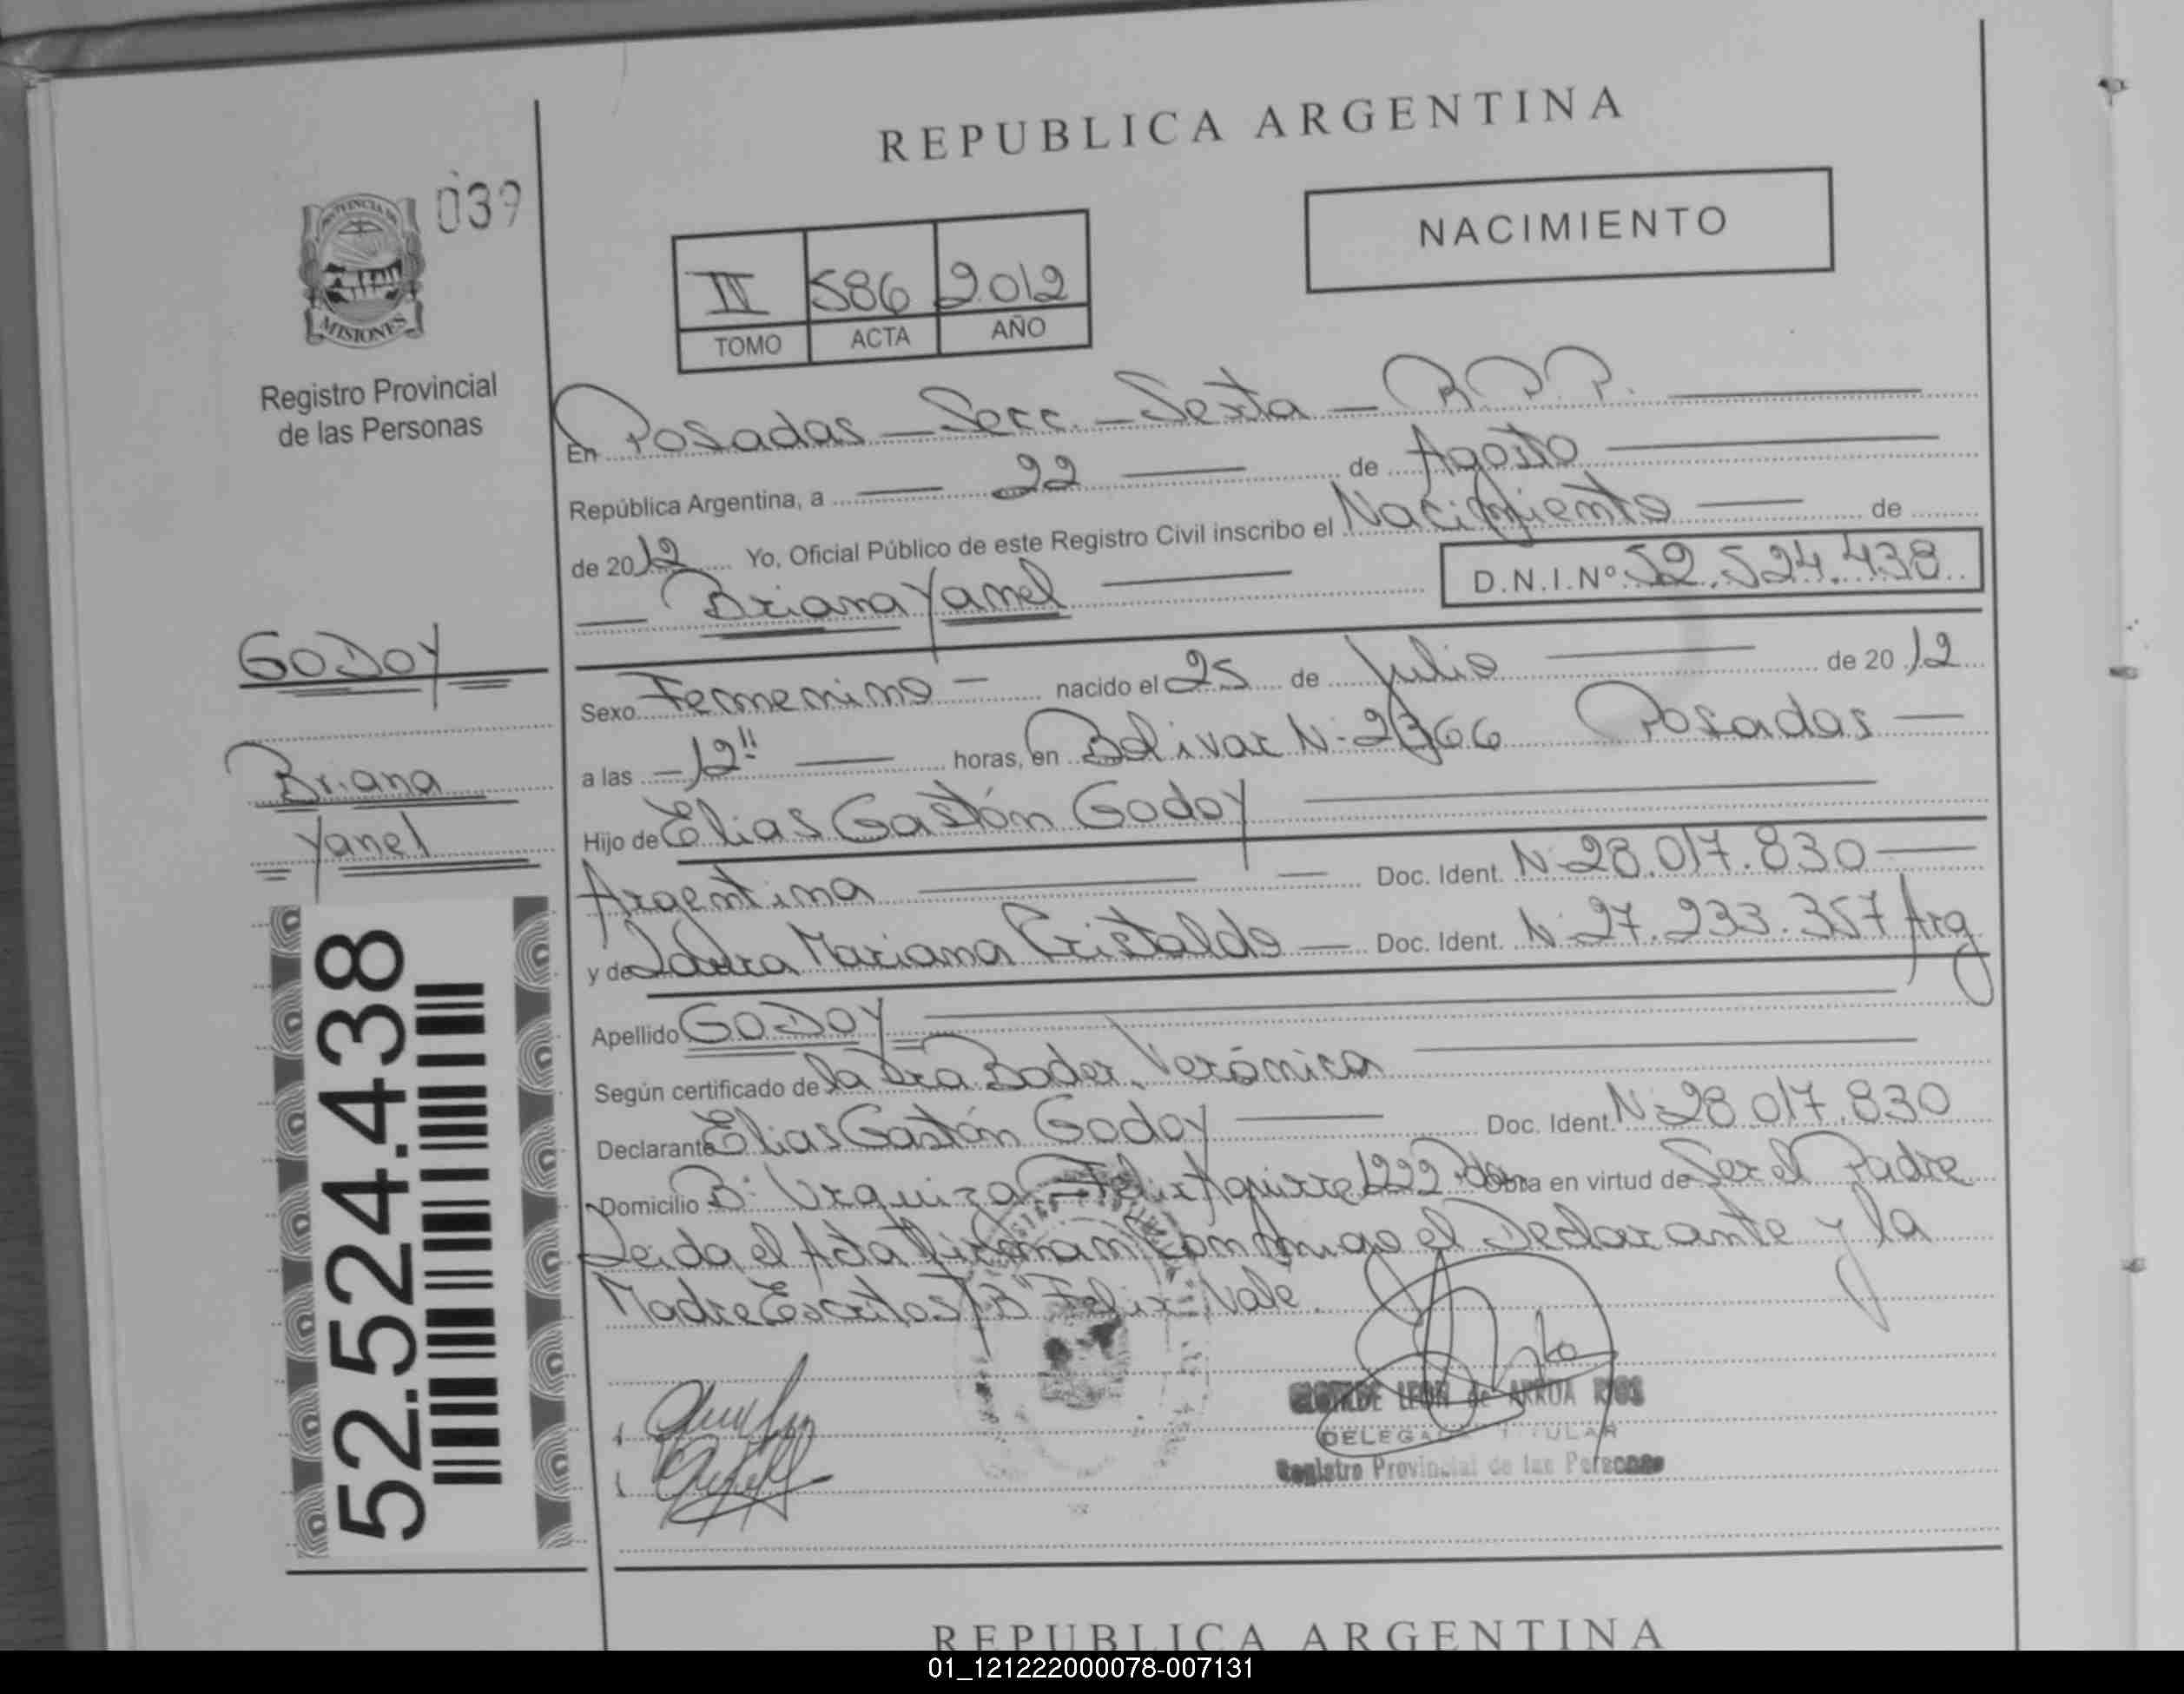 REPUBLICA ARGENTINA
039
PROVINCIA DE
MISIONES
Registro Provincial
de las Personas
NACIMIENTO
IV 586 2012
TOMO ACTA AÑO
En Posadas - Secc. - Sexta - R.P.P.
República Argentina, a 22 de Agosto
de 2012 Yo, Oficial Público de este Registro Civil inscribo el Nacimiento de
Briana Yanel D.N.I.Nº 52.524.438
GODOY
Briana
Yanel
Sexo Femenino nacido el 25 de Julio de 2012
a las 12 horas, en Bolivar N: 2366 Posadas
Hijo de Elias Gastón Godoy
Argentina Doc. Ident. N: 28.017.830
y de Laura Mariana Cristaldo Doc. Ident. N: 27.233.357 Arg
Apellido GODOY
Según certificado de la Dra Bader, Verónica
Declarante Elias Gastón Godoy Doc. Ident. N: 28.017.830
Domicilio B: Urquiza - Felix Aguirre 1222 Obra en virtud de Ser el Padre
Leida el Acta Firman Conmigo el Declarante y la
Madre Escritos "B" Felix Vale.
52.524.438
CLOTILDE LEON de ARRUA RIOS
DELEGADA TITULAR
Registro Provincial de las Personas
REPUBLICA ARGENTINA
01_121222000078-007131